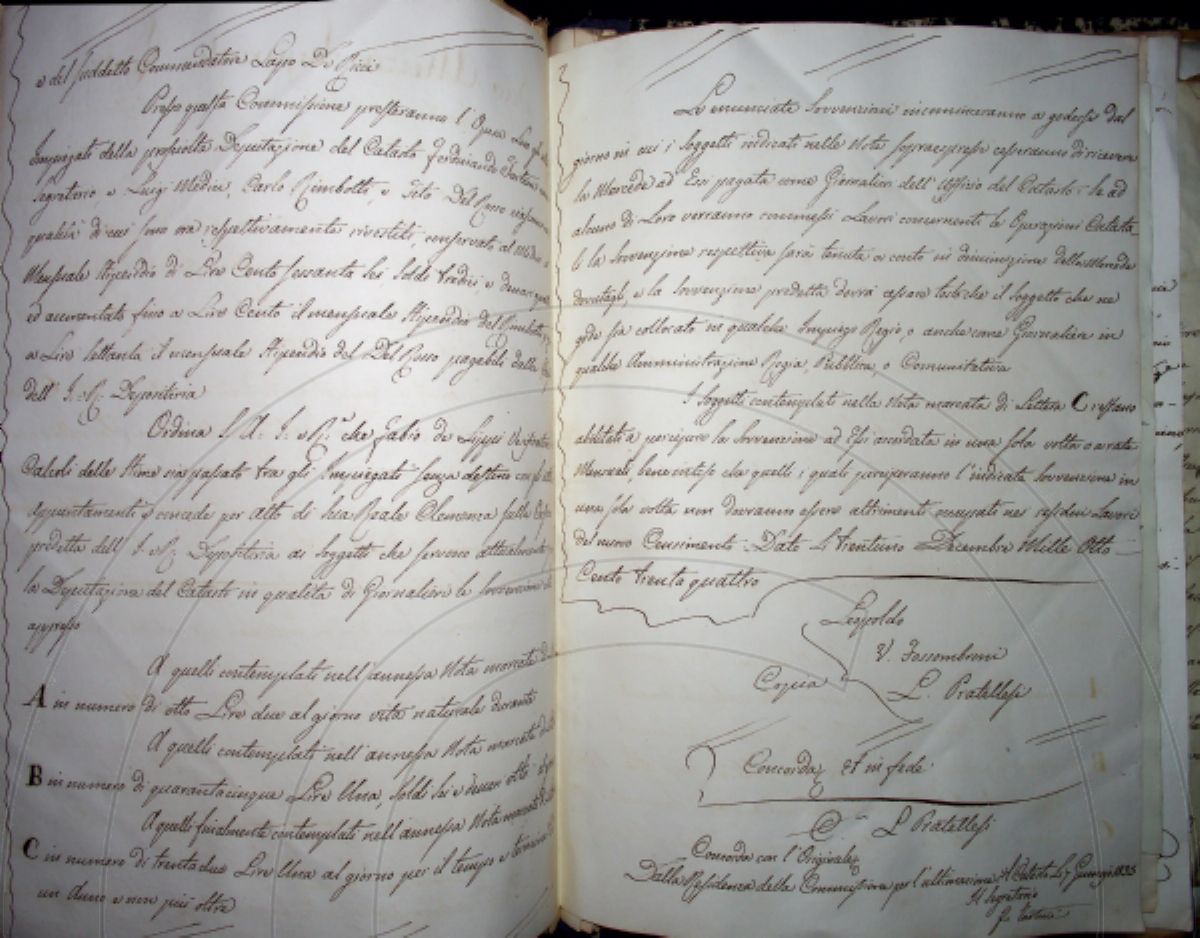 e del suddetto Commendatore Lapo De Ricci
Presso questa Commissione presteranno l'Opera Loro gli
Impiegati della prosciolta Deputazione del Catasto Ferdinando Tartini
Segretario, e Luigi Medici, Carlo Rimbotti, e Tito Del Rosso ciascuno
qualità di cui sono ora respettivamente rivestiti, conservati al Medici il
Mensuale Stipendio di Lire Cento sessanta sei Soldi tredici, e denari quattro
ed aumentato fino a Lire Cento il mensuale Stipendio del Rimbotti, e
a Lire settanta il mensuale Stipendio del Del Rosso pagabili dalla
dell' I. e R. Depositeria
Ordina S. A. I. e R. che Fabio de Seppi Verificatore
Calcoli delle Stime sia passato tra gli Impiegati senza destino con
Appuntamenti e concede per Atto di Sua Reale Clemenza sulla Cassa
predetta dell' I. e R. Depositeria ai Soggetti che servono attualmente
la Deputazione del Catasto in qualità di Giornalieri le Sovvenzioni che
appresso
A quelli contemplati nell'annessa Nota marcata di
A in numero di otto Lire due al giorno vita naturale durante
A quelli contemplati nell'annessa Nota marcata di
B in numero di quarantacinque Lire Una, Soldi sei e denari otto
A quelli finalmente contemplati nell'annessa Nota marcata
C in numero di trentadue Lire Una al giorno per il tempo e termine di
un Anno e non più oltre
Le enunciate Sovvenzioni incominceranno a godersi dal
giorno in cui i Soggetti indicati nelle Note sopraespresse cesseranno di ricevere
la Mercede ad Essi pagata come Giornalieri dell'Uffizio del Catasto; Se ad
alcuno di Loro verranno commessi Lavori concernenti le Operazioni Catasta-
li la Sovvenzione respettiva sarà tenuta a conto in diminuzione della Mercede
dovutagli, e la Sovvenzione predetta dovrà cessare tosto che il Soggetto che ne
gode sia collocato in qualche Impiego Regio, o anche come Giornaliere in
qualche Amministrazione Regia, Pubblica, o Comunitativa
I Soggetti contemplati nella Nota marcata di Lettera C restano
abilitati a percipere la Sovvenzione ad Essi accordata in una sola volta o a rate
Mensuali, bene inteso che quelli i quali perciperanno l'indicata Sovvenzione in
una sola volta non dovranno essere altrimenti occupati nei residui Lavori
del nuovo Censimento. Dato Li trentuno Decembre Mille Otto-
Cento trenta quattro
Leopoldo
V. Fossombroni
Copia L. Pratellesi
Concorda, et in fede
L Pratellesi
Concorda con l'Originale
Dalla Residenza della Commissione per l'ultimazione del Catasto Li 7 Giugno 1835
Il Segretario
F. Tartini